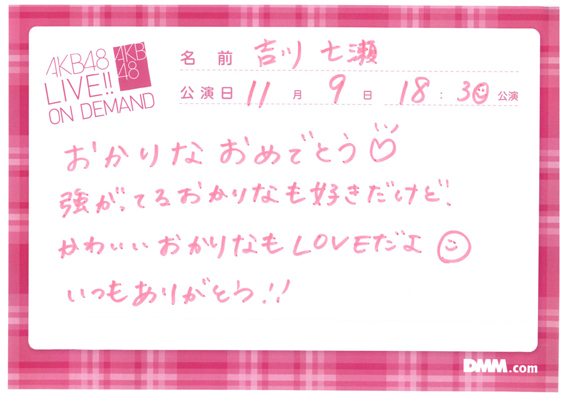 AKB48
LIVE!!
ON DEMAND
AKB
48
名前 吉川七瀬
公演日 11月9日 18:30公演
おかりなおめでとう♡
強がってるおかりなも好きだけど、
かわいいおかりなもLOVEだよ☺
いつもありがとう!!
DMM.com